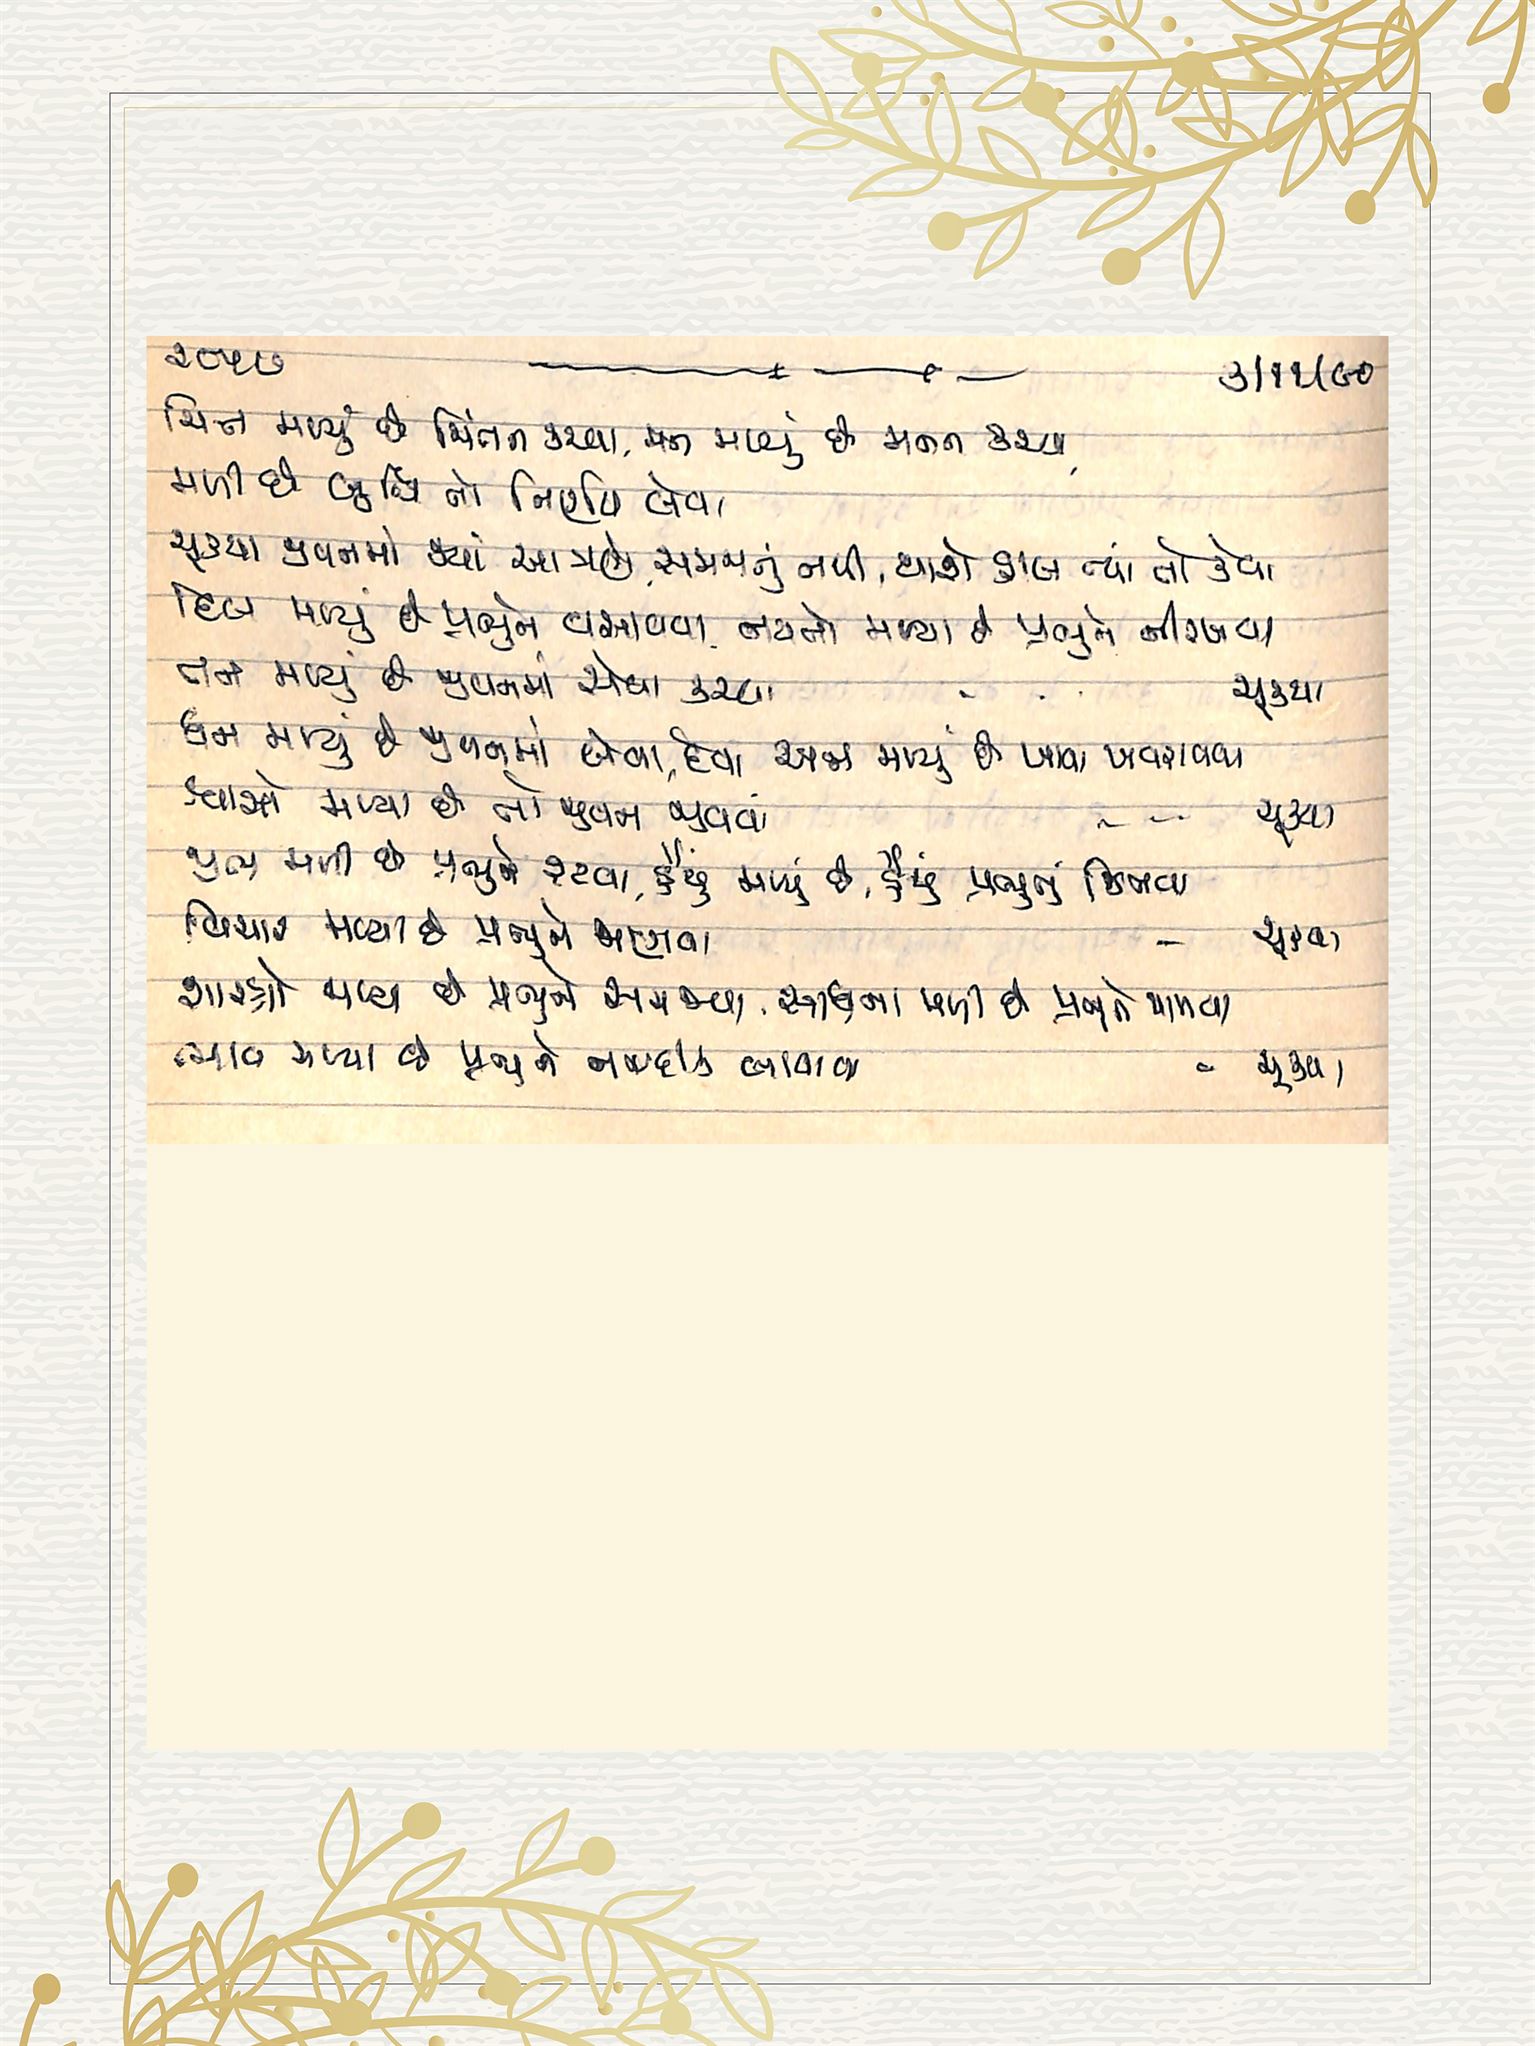 ૨૦૫૭ ૩/૧૧/૯૦
ચિત્ત મળ્યું છે ચિંતન કરવા, મન મળ્યું છે મનન કરવા,
મળી છે બુદ્ધિ તો નિર્ણય લેવા
ચૂક્યા જીવનમાં જ્યાં આ સમજનું નથી, થાશે હાલ ત્યાં તો કેવા
દિલ મળ્યું છે પ્રભુને વસાવવા, નયનો મળ્યા છે પ્રભુને નીરખવા
તન મળ્યું છે જીવનમાં સેવા કરવા ચૂક્યા
ધન મળ્યું છે જીવનમાં લેવા, દેવા અન્ન મળ્યું છે ખાવા ખવરાવવા
શ્વાસો મળ્યા છે તો જીવન જીવવા ચૂક્યા
જીભ મળી છે પ્રભુને રટવા, હૈયું મળ્યું છે, હૈયું પ્રભુનું જિતવા
વિચાર મળ્યા છે પ્રભુને જાણવા ચૂક્યા
શાસ્ત્રો મળ્યા છે પ્રભુને સમજવા, સાધના મળી છે પ્રભુને પામવા
ભાવ મળ્યા છે પ્રભુને નજદીક લાવવા ચૂક્યા